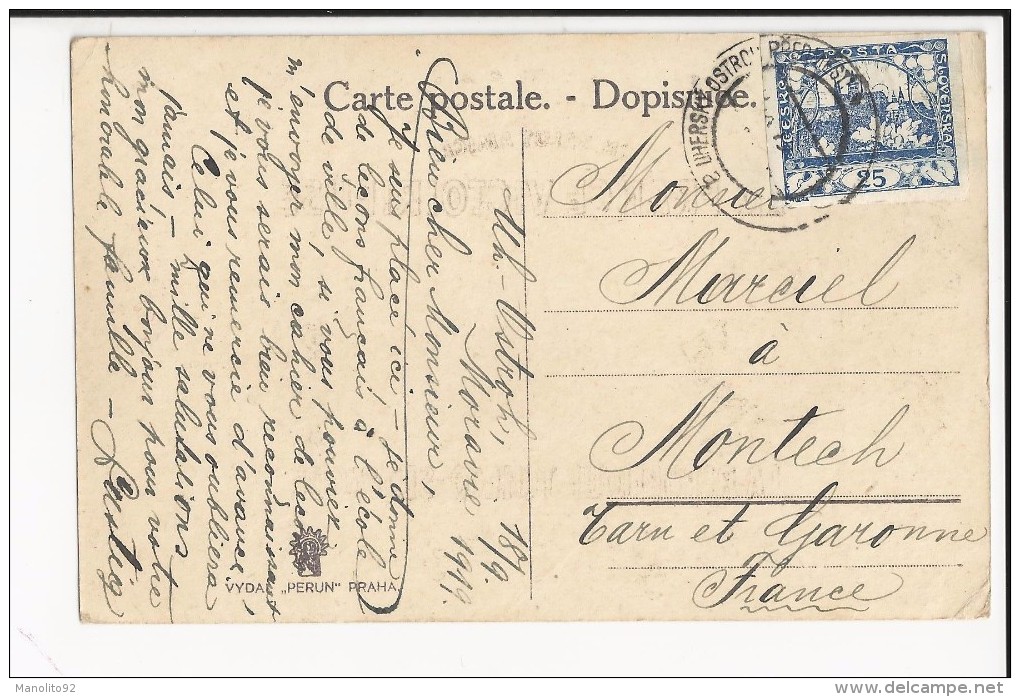 Carte postale. - Dopisnice.
UHERSKÝ OSTROH
POŠTA
ČESKO-SLOVENSKÁ
25
Monsieur
Marciel
à
Montech
Tarn et Garonne
France
Uh.-Ostroh, 18/9.
Moravie 1919.
Bien cher Monsieur,
Je suis placé ici - je donne
de leçons français à l'école
de ville, si vous pouviez
m'envoyer mon cahier de
je vous serais bien reconnaissant
et je vous remercie d'avance,
Celui qui ne vous oubliera
jamais - mille salutations
mon gracieux bonjour pour votre
honorable famille -
VYDAL „PERUN" PRAHA
Manolito92
www.delcampe.net